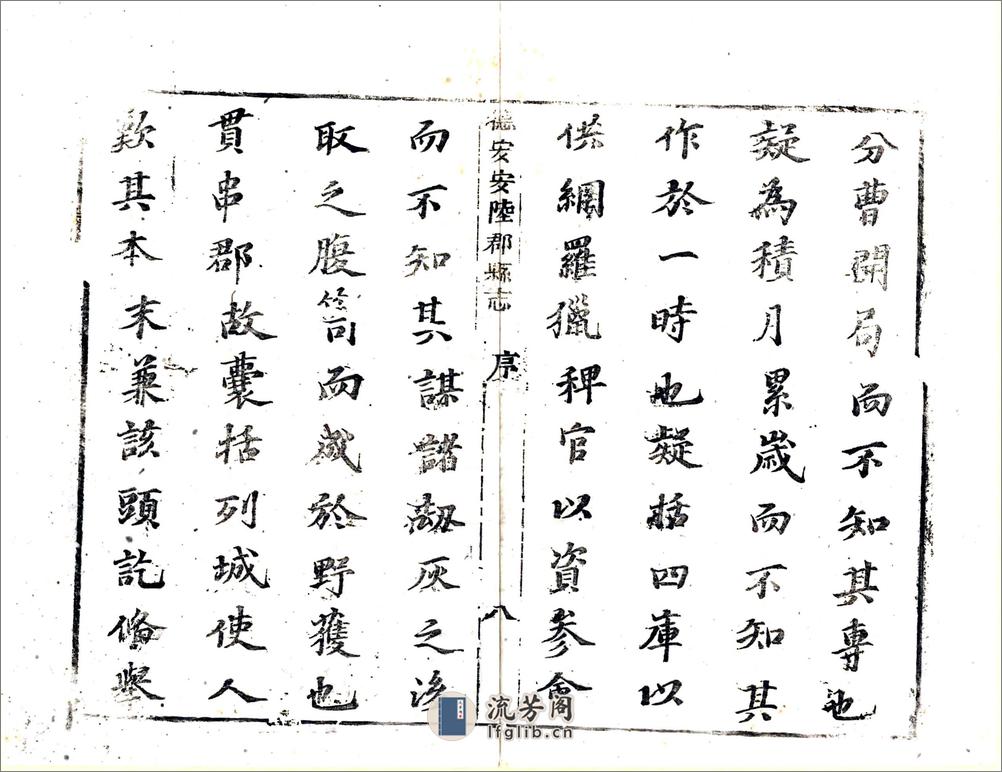 分曹開局而不知其專也
凝為積月累歲而不知其
作於一時也凝括四庫以
供網羅獵稗官以資參
德安安陸郡縣志 序 八
而不知其謀諸劫灰之後
取之腹笥而成於野獲也
貫串郡故囊括列城使人
歎其本末兼該頭訖備舉
流芳阁
lfglib.cn